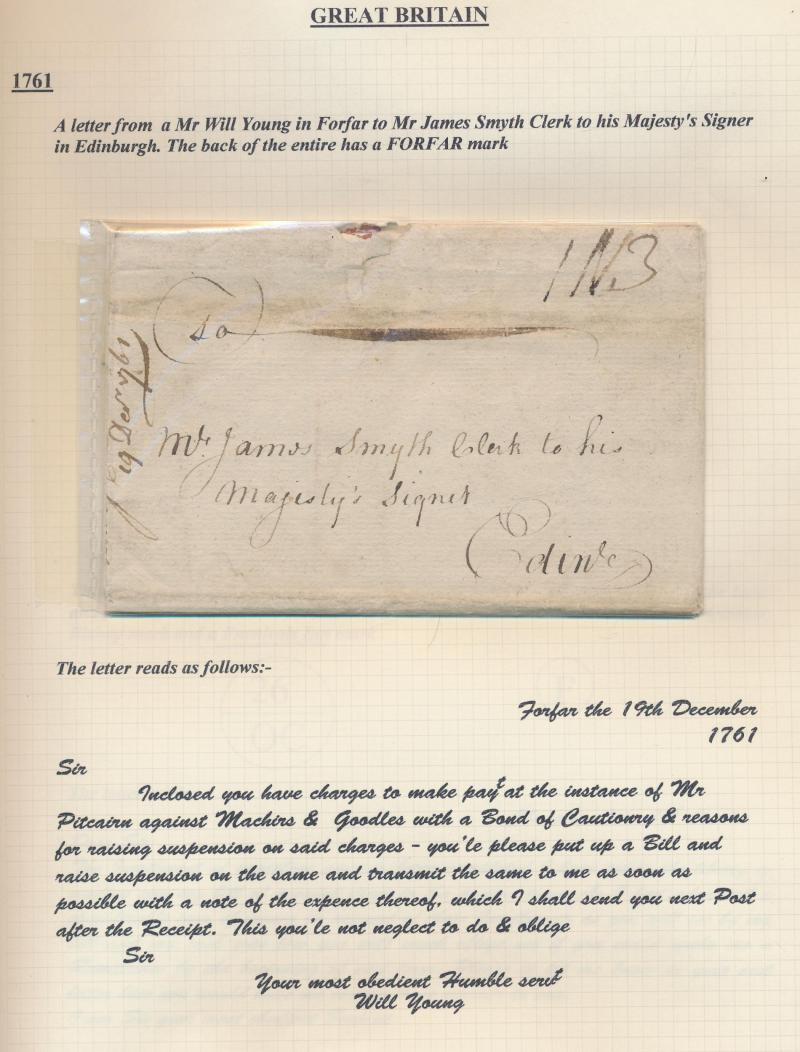 GREAT BRITAIN
1761
A letter from a Mr Will Young in Forfar to Mr James Smyth Clerk to his Majesty's Signer
in Edinburgh. The back of the entire has a FORFAR mark
3
To
19 Decr 1761
Mr. James Smyth Clerk to his
Majesty's Signet
Edinr
The letter reads as follows:-
Forfar the 19th December
1761
Sir
Inclosed you have charges to make payt at the instance of Mr
Pitcairn against Machirs & Goodles with a Bond of Cautionry & reasons
for raising suspension on said charges - you'le please put up a Bill and
raise suspension on the same and transmit the same to me as soon as
possible with a note of the expence thereof, which I shall send you next Post
after the Receipt. This you'le not neglect to do & oblige
Sir
Your most obedient Humble servt
Will Young